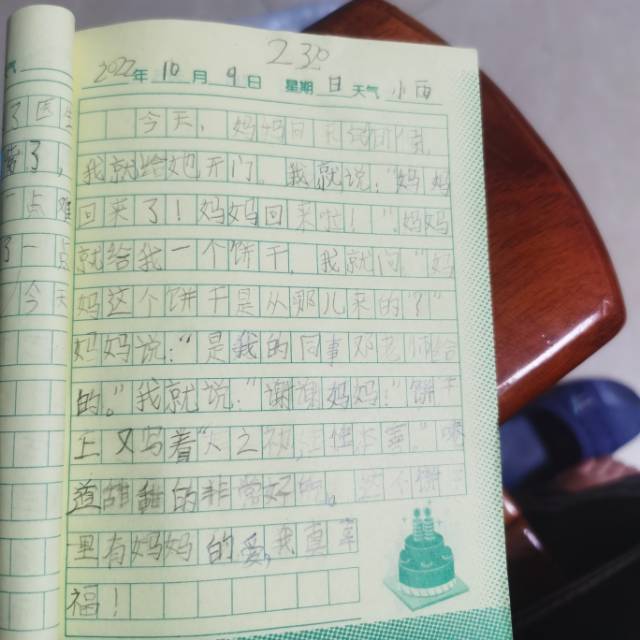 230
2022年10月9日 星期日 天气小雨
今天，妈妈
我就给她开门。我就说："妈妈
回来了！妈妈回来啦！"妈妈
就给我一个饼干，我就问："妈
妈这个饼干是从哪儿来的？"
妈妈说："是我的同事邓老师给
的。"我就说："谢谢妈妈！"饼干
上又写着"人之初，性本善。"味
道甜甜的非常好的。这个饼干
里有妈妈的爱，我真幸
福！
了医生
了。
点
了一点
今天